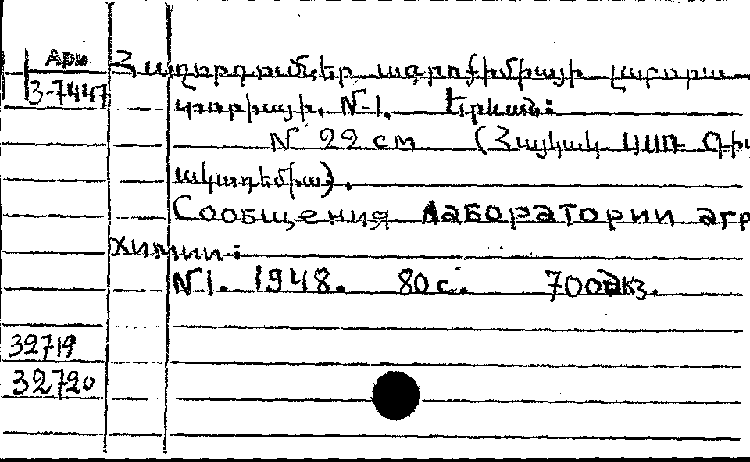 Արխ
3-7447
Հաղորդումներ ագրոքիմիայի լաբորա
տորիայի. N-1. Երևան:
N 22 см (Հայկակ ՍՍՌ Գիտ
ակադեմիա).
Сообщения Лаборатории агр
химии:
N1. 1948. 80 с. 700 экз.
32719
32720